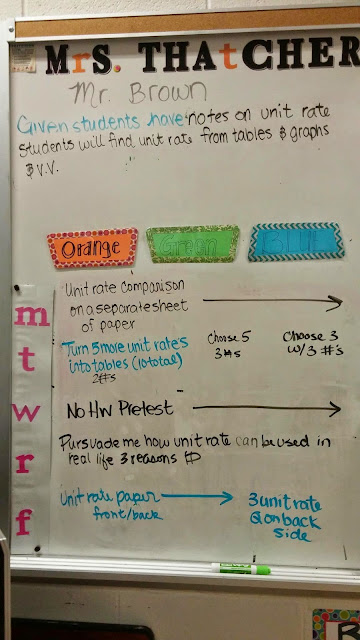 MrS. THAtCHER
Mr. Brown
Given students have notes on unit rate
students will find unit rate from tables & graphs
& v.v.
Orange Green BLUE
m
Unit rate comparison
on a separate sheet
of paper
t
Turn 5 more unit rates
into tables (10 total)
2#s
Choose 5
3#s
Choose 3
w/3 #'s
w
No Hw Pretest
r
Pursuade me how unit rate can be used in
real life 3 reasons
f
Unit rate paper
front/back
3 unit rate
Q on back
side